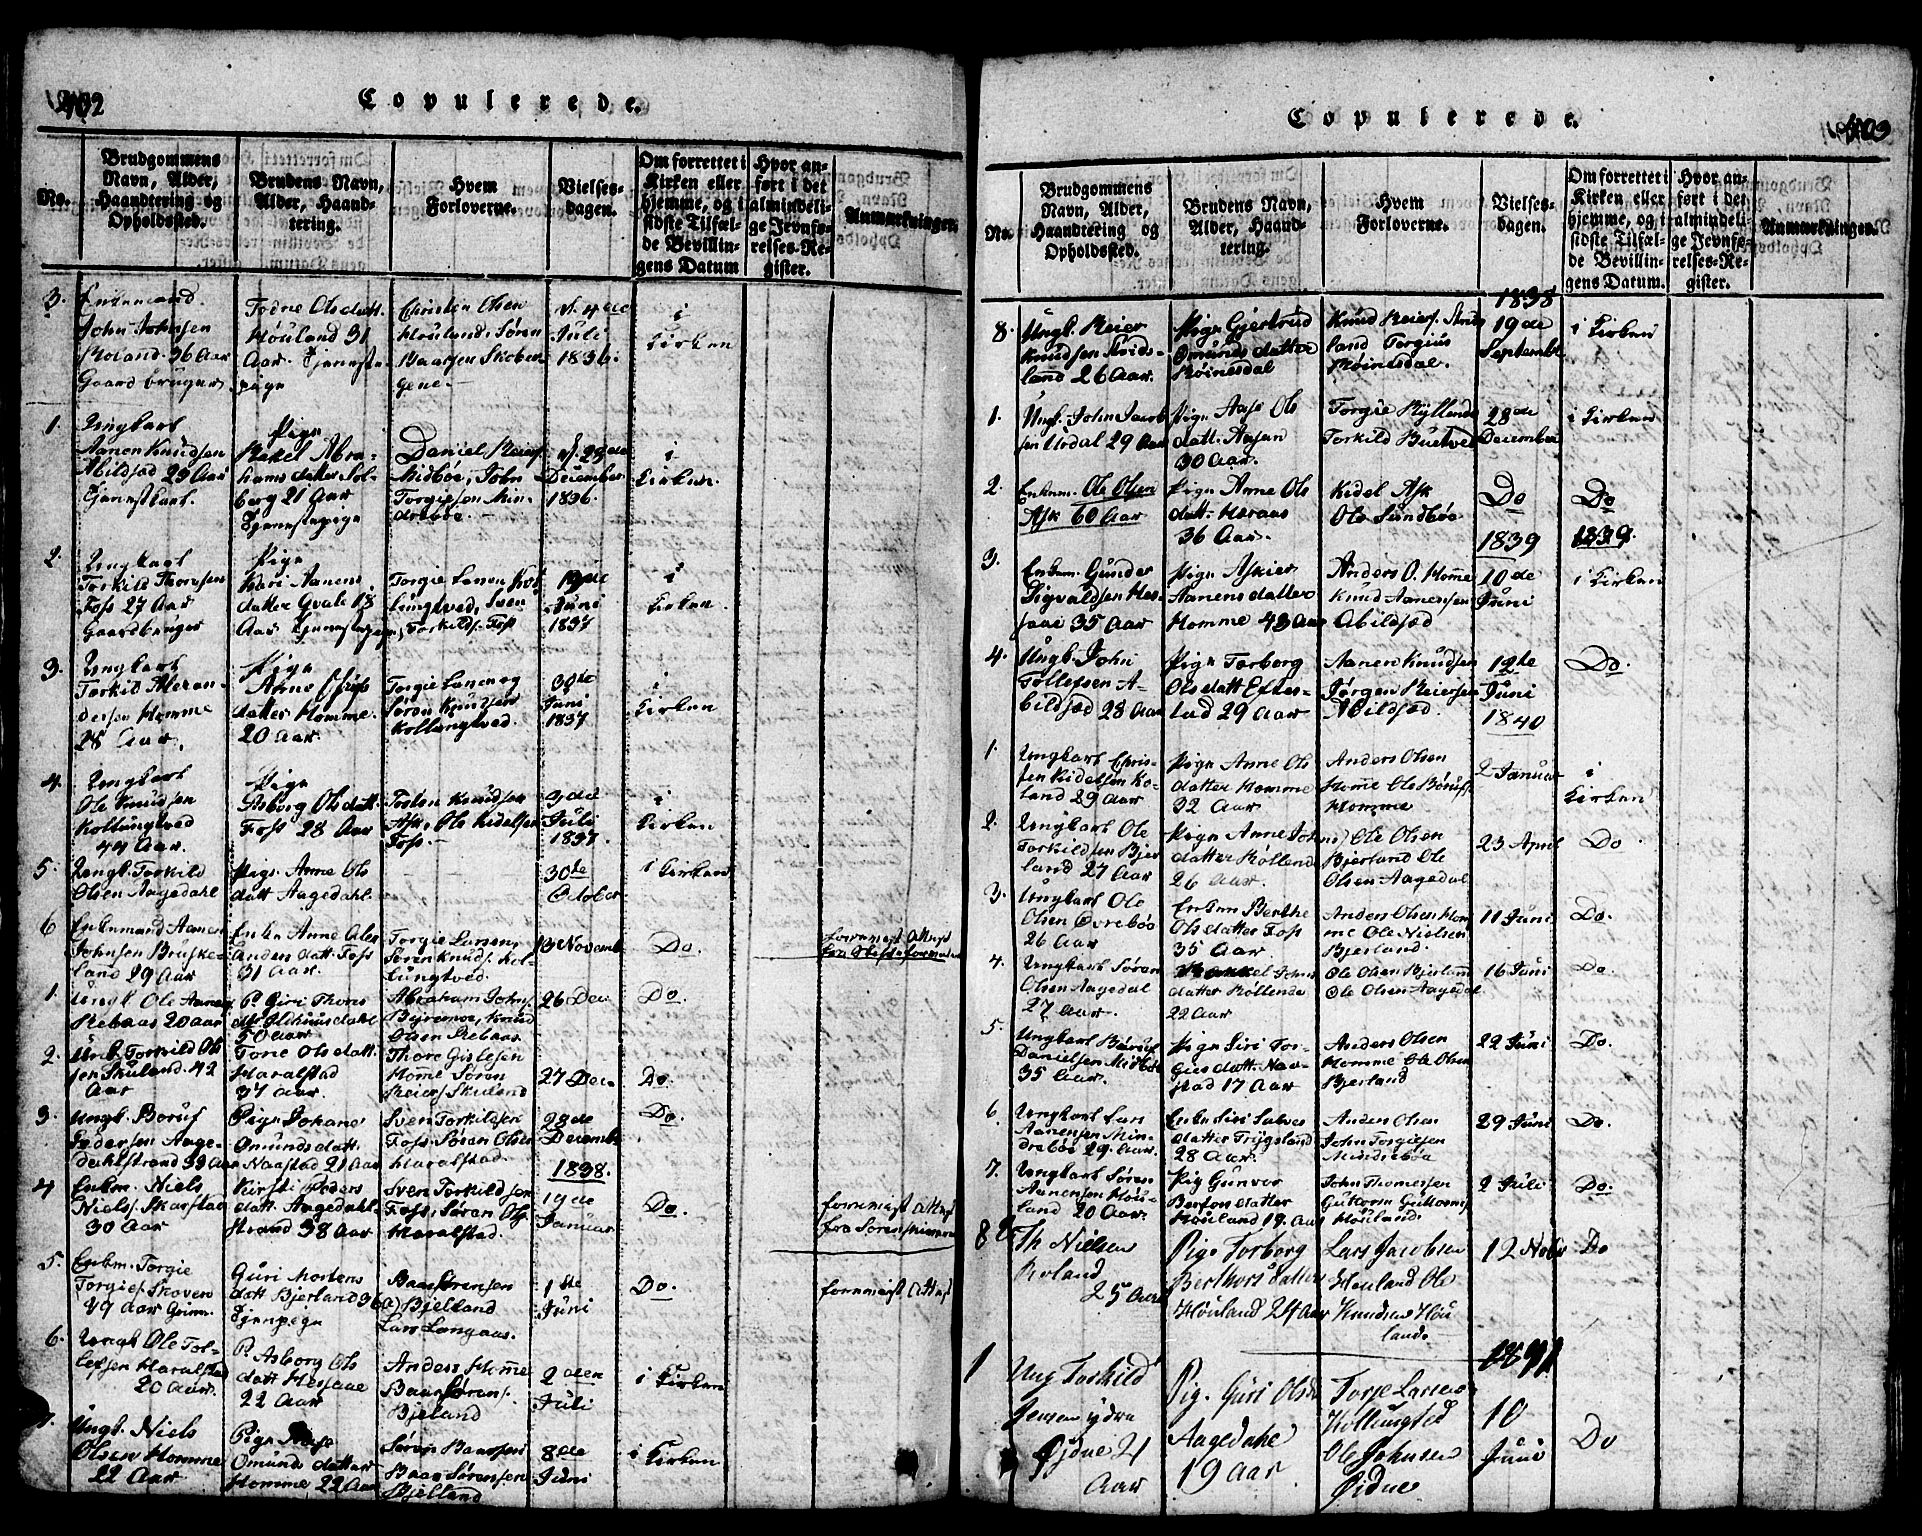 402
Copulerede.
No.
Brudgommens
Navn, Alder,
Haandtering og
Opholdsted.
Brudens Navn,
Alder, Haand-
tering.
Hvem
Forloverne.
Vielses-
dagen.
Om forrettet i
Kirken eller
hjemme, og i
sidste Tilfæl-
de Bevillin-
gens Datum
Hvor an-
ført i det
almindeli-
ge Jevnfø-
relses-Re-
gister.
Anmærkninger.
3.
Enkemand
John Johnsen
Roland 36 Aar
Gaardbruger
Todne Olsdatt
Houland 31
Aar. Tjenste-
pige
Christen Olsen
Houland, Søren
Baarsen
4de
Juli
1836.
i
Kirken
1.
Ungkarl
Aanen Knudsen
Abildsød 25 Aar
Tjenstkarl.
Pige
Rakel Abra-
hams datter Sol-
berg 21 Aar
Tjenstepige
Daniel Reiers
Midbøe, John
Torgiesen Min-
drebøe.
28de
December
1836.
i
Kirken
2.
Ungkarl
Torkild
Foss 27 Aar
Gaardbruger
Pige
Kari Aanens
datter Qvale 18
Aar Tjenstepige
Torgie Larsen Kol-
lungtved, Sven
Torkilds. Foss
19de
Juni
1837
i
Kirken
3.
Ungkarl
Torkild Alexan-
dersen Homme
28 Aar.
Pige
Anne
datter Homme.
20 Aar.
Torgie Larsen og
Søren Knudsen
Kollungtved.
30de
Juni
1837
i
Kirken
4.
Ungkarl
Ole Knudsen
Kollungtved
44 Aar.
Pige
Asborg Olsdatt.
Foss 28 Aar
Torsten Knudsen
Ask, Ole Kidelsen
Foss.
9de
Juli
1837.
i
Kirken
5.
Ungk. Torkild
Olsen Aagedahl
Pige Anne Ols
datt Aagedahl.
30te
October
i Kirken
6
Enkemand Aanen
Johnsen Bruske-
land 29 Aar
Enke Anne Alex
anders datt Foss
31 Aar.
Torgie Larsen,
Søren Knuds. Kol-
lungtved.
13 Novemb
Do.
forevist Attest
1.
Ungk Ole Aanens
Rebaas 20 Aar
P. Siri Thores
50 Aar
Abraham Johns.
Knud
Olsen Rebaas
26 Dec
Do.
2.
Ungk. Torkild Ol-
sen Skuland. 42
Aar
Tone Olsdatt.
Haralstad
37 Aar.
Thore Gislesen
Homme Søren
Reiers. Skuland
27 Dec
Do.
3.
Ungk. Borus
Pedersen Aage-
dahlstrand 33 Aar
Pige Johane
Omundsdatt.
Naastad 21 Aar
Sven Torkildsen
Foss, Søren Olsen
Haralstad.
28de
Decemb
Do.
1838.
4
Enkem. Niels
Niels. Skarstad
30 Aar
Kirsti Peders
datt. Aagedahl-
strand 38 Aar
Sven Torkildsen
Foss, Søren Ols
Haralstad.
19de
Januar
Do.
forevist Attest
5.
Enkem. Torgie
Torgies. Skoven
49 Aar
Guri Mortens
datt Bjerland 36
Tjenpige
Baar Sørensen
Bjelland
Lars Langaas.
1ste
Juni
Do.
forevist Attest
6.
Ungk Ole Tol-
lefsen Haralstad
20 Aar.
P. Asborg Ols
datt Hessaae
22 Aar
Anders Homme
Baar Sørens.
Bjeland
2den
Juli
i Kirken
7.
Ungk. Niels
Olsen Homme
22 Aar
Pige Aase
Omunds datter
Homme 22 Aar
Søren Baarsen
Baar Sørensen
Bjelland
8de
Juni
i Kirken
403
Copulerede.
No.
Brudgommens
Navn, Alder,
Haandtering og
Opholdsted.
Brudens Navn,
Alder, Haand-
tering.
Hvem
Forloverne.
Vielses-
dagen.
Om forrettet i
Kirken eller
hjemme, og i
sidste Tilfæl-
de Bevillin-
gens Datum.
Hvor an-
ført i det
almindeli-
ge Jevnfø-
relses-Re-
gister.
Anmærkninger.
1838
8.
Ungk. Reier
Knudsen
land 26 Aar.
Pige Gjertrud
Omunds datter
Røinesdal
Knud Reiers.
land Torgius
Røinesdal.
19de
September
i Kirken
1.
Ungk. John Jacob-
sen Urdal 29 Aar
Pige Aase Ols
datt. Aasen
30 Aar.
Torgie
Torkild
28de
December
i Kirken
2.
Enkem. Ole Olsen
Ask 60 Aar
Pige Anne Ols
datt. Heraas
36 Aar.
Kidel Ask
Ole Sundbøe
Do
Do
1839
1839.
3.
Enkem. Gunder
Sigvaldsen Hes-
saae 35 Aar
Pige Askier
Aanens datter
Homme 43 Aar
Anders O. Homme
Knud Aanensen
Abildsød
10de
Juni
i Kirken
4.
Ungk. John
Tollefsen A-
bildsød 28 Aar
Pige Torborg
Olsdatt
lad 29 Aar
Aanen Knudsen
Jørgen Reiersen
Abildsød.
12te
Juni
Do.
1840
1.
Ungkarl Chris-
ten Kidelsen Ro-
land 29 Aar
Pige Anne Ols
datter Homme
32 Aar
Anders Olsen
Homme Ole Børufs.
Homme
2 Januar
i
Kirken
2.
Ungkarl Ole
Torkildsen Bjer-
land 27 Aar
Pige Anne Johns
datter Røllend
26 Aar.
Ole Olsen
Bjerland Ole
Olsen Aagedal
23 April
Do
3.
Ungkarl Ole
Olsen Øvrebøe
26 Aar
Enken Berthe
Olsdatter Foss
35 Aar
Anders Olsen Hom-
me Ole Nielsen
Bjerland.
11 Juni
Do.
4.
Ungkarl Søren
Olsen Aagedal
27 Aar.
Rakkel Johns
datter Røllend
22 Aar
Ole Olsen Bjerland
Ole Olsen Aagedal
16 Juni
Do.
5.
Ungkarl Børuf
Danielsen Midbøe
35 Aar.
Pige Siri Tor-
gies datt. Naa-
stad 17 Aar
Anders Olsen
Homme Ole Olsen
Bjerland
22 Juni
Do.
6.
Ungkarl Lars
Aanensen Min-
drebøe 29 Aar.
Enke Siri Salves
datter Trygsland
28 Aar.
Anders Olsen
John Torgiesen
Mindrebøe
29 Juni
Do.
7.
Ungkarl Søren
Aanensen Hou-
land 20 Aar.
Pig Gunvor
datter
Houland 19. Aar
John Thomesen
Guttorm Guttorms
Houland.
2 Juli
Do.
8
Th Nielsen
Roland
25 Aar
Pige Torborg
Berthors datter
Houland 24 Aar
Lars Jacobsen
Houland Ole
Knudsen Hou
land.
12 Nobr
Do
1841
1
Ung Torkild
Jensen Ydra
Øidne 21
Aar
Pig. Guri Olsd
Aagedahl
19 Aar
Torje Larsen
Kollungtved
Ole Johnsen
Øidne
10
Juni
Do